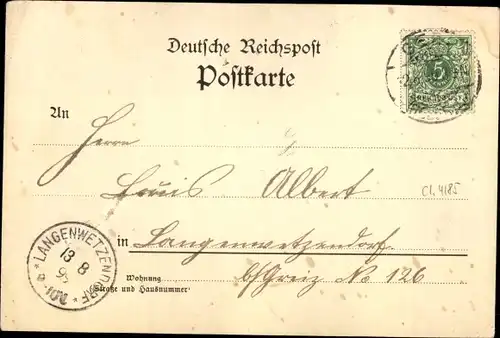 Deutsche Reichspost
Postkarte
An
Herrn
Louis Albert
Cl. 4185
in Langenwetzendorf
Wohnung
(Straße und Hausnummer)
b/Greiz No 126
* LANGENWETZENDORF *
13 8
5